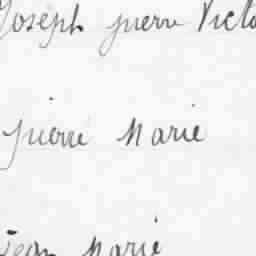 Joseph pierre Victo
pierre Marie
jean Marie